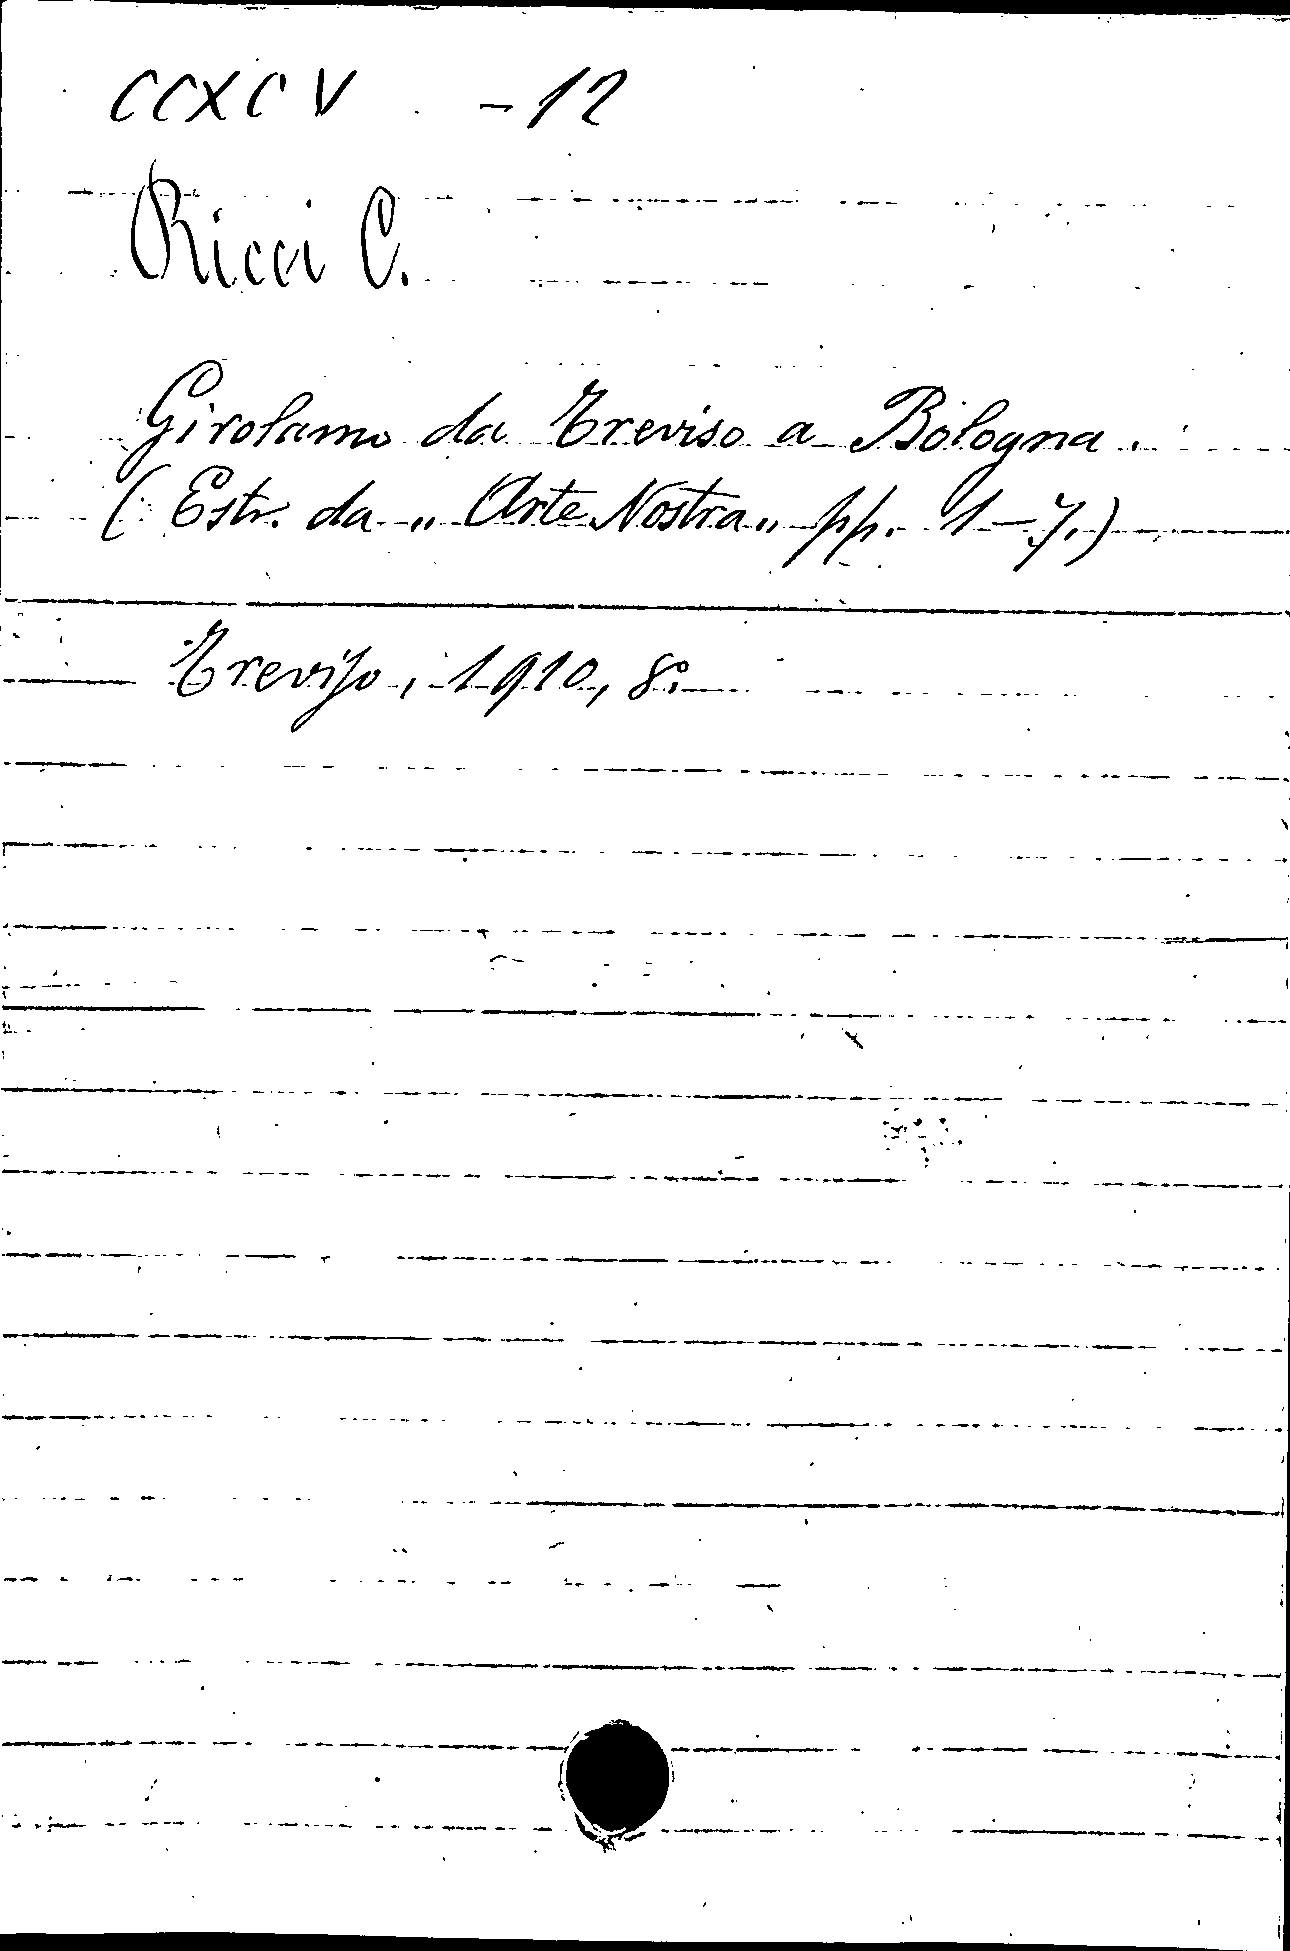 CCXCV - 12
Ricci C.
Girolamo da Treviso a Bologna.
(Estr. da „ Arte Nostra„ pp. 1-7.)
Treviso, 1910, 8°.